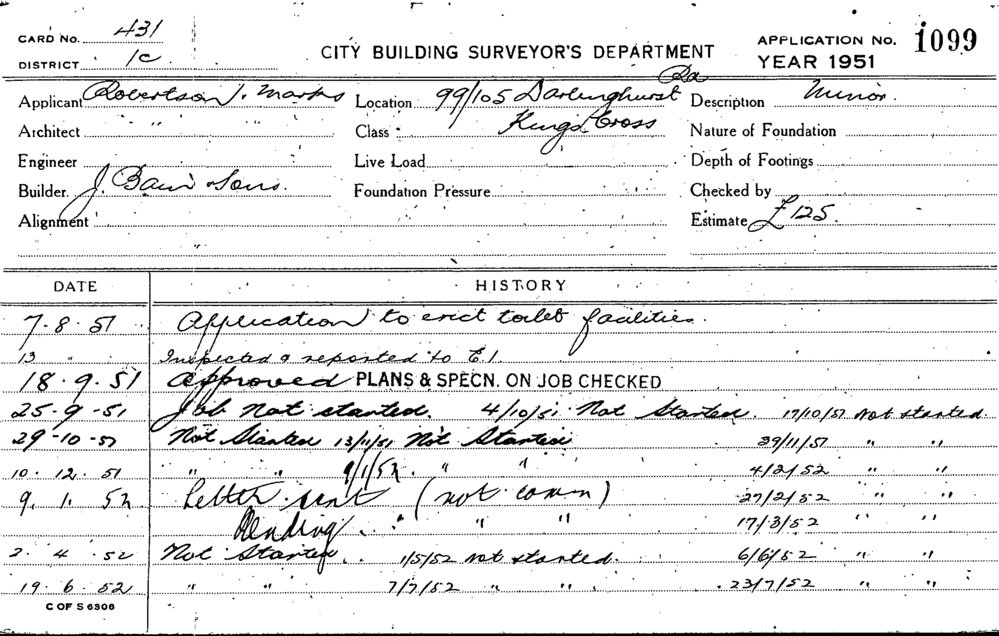 CARD NO. 431
DISTRICT 1c
CITY BUILDING SURVEYOR'S DEPARTMENT
APPLICATION NO. 1099
YEAR 1951
Applicant Robertson & Marks Location 99/105 Darlinghurst Rd Description Minor.
Architect " " Class Kings Cross Nature of Foundation
Engineer Live Load Depth of Footings
Builder J. Bain & Sons. Foundation Pressure Checked by
Alignment Estimate £125.
DATE HISTORY
7.8.51 Application to erect toilet facilities.
13 " Inspected & reported to E1
18.9.51 Approved PLANS & SPECN. ON JOB CHECKED
25-9-51 Job Not started. 4/10/51 Not Started. 17/10/51 Not started.
29-10-51 Not Started 13/11/51 Not Started 29/11/51 " "
10.12.51 " " 9/1/52 . " " 4/2/52 " "
9.1.52 Letter sent (not comm) 27/2/52 " "
Pending . " " " 17/3/52 " "
2.4.52 Not Started . . 1/5/52 not started. 6/6/52 " "
19.6.52 " " 7/7/52 " " 23/7/52 " "
C OF S 6306